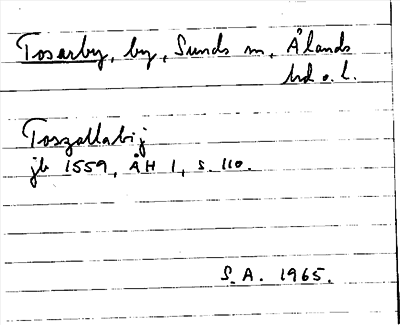 Tosarby, by, Sunds m, Ålands
hd o. l.
Toszallabij
jb 1559, ÅH 1, s. 110.
S.A. 1965.